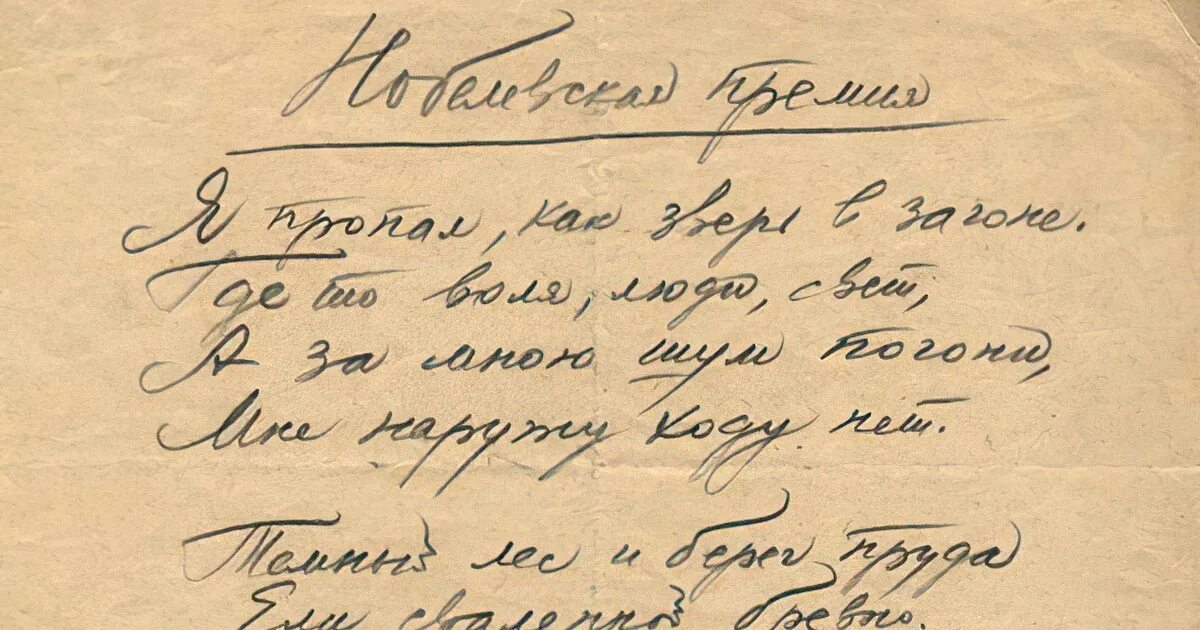 Нобелевская премия
Я пропал, как зверь в загоне.
Где то воля, люди, свет,
А за мною шум погони,
Мне наружу ходу нет.
Темный лес и берег пруда
Ели сваленной бревно.